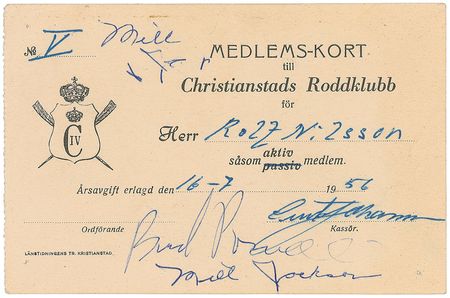 № V
Milt
MEDLEMS-KORT
till
Christianstads Roddklubb
för
C IV
Herr Rolf Nilsson
såsom aktiv passiv medlem.
Årsavgift erlagd den 16-7 1956
Ordförande
Kassör.
Bud Powell
Milt Jackson
LÄNSTIDNINGENS TR. KRISTIANSTAD.